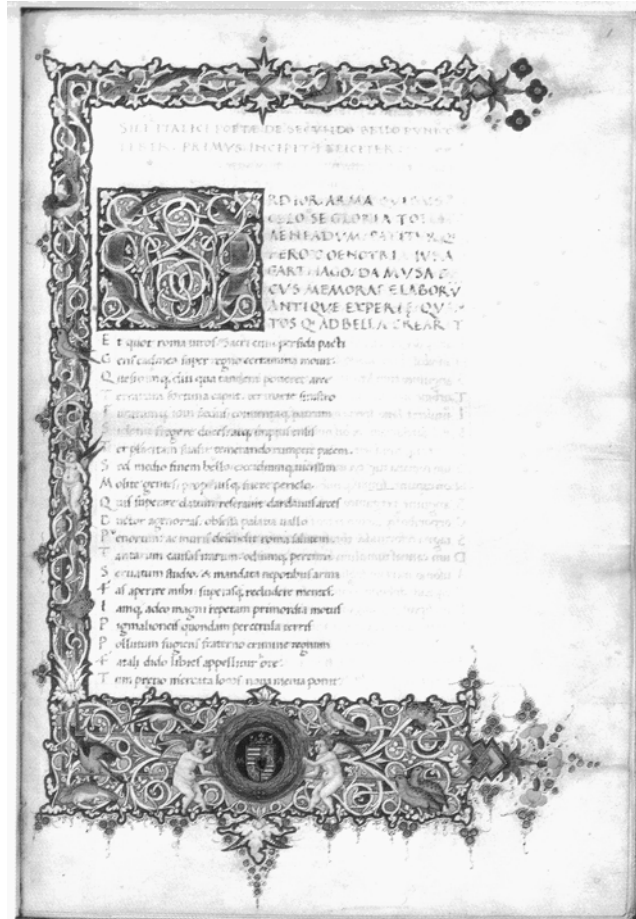 SILI ITALICI POETE DE SECUNDO BELLO PUNICO
LIBER PRIMUS INCIPIT FELICITER
ORDIOR ARMA QVIBVS
CELO SE GLORIA TOLLIT
AENEADVM PATITVR Q
FERO OENOTRIA IVRA
CARTHAGO. DA MVSA
CVS MEMORARE LABORV
ANTIQVE HESPERIE QV
TOS Q AD BELLA CREARIT
Et quot roma uiros. Sacri cum perfida pacti
Gens cadmea super regno certamina mouit
Quesitumq. diu qua tandem poneret arce
Terrarum fortuna caput. ter marte sinistro
Iuratumq. ioui fedus conuentaq. patrum
fregere duces. atq. impius ensis
Ter placitam suasit temerando rumpere pacem.
Sed medio finem bello excidiumq. uicissim
Molite gentes. propiusq. fuere periclo.
Quis superare datum. reserauit dardanus arces
Ductor agenoreas. obsessa palatia uallo
Penorum: ac muris defendit roma salutem.
Tantarum causas irarum. odiumq. perenni
Seruatum studio. & mandata nepotibus arma
Fas aperire mihi. superasq. recludere mentes.
Iamq. adeo magni repetam primordia motus
Pigmalioneis quondam per cerula terris
Pollutum fugiens fraterno crimine regnum
Fatali dido libies appellitur ore.
Tum pretio mercata locos noua menia ponit.